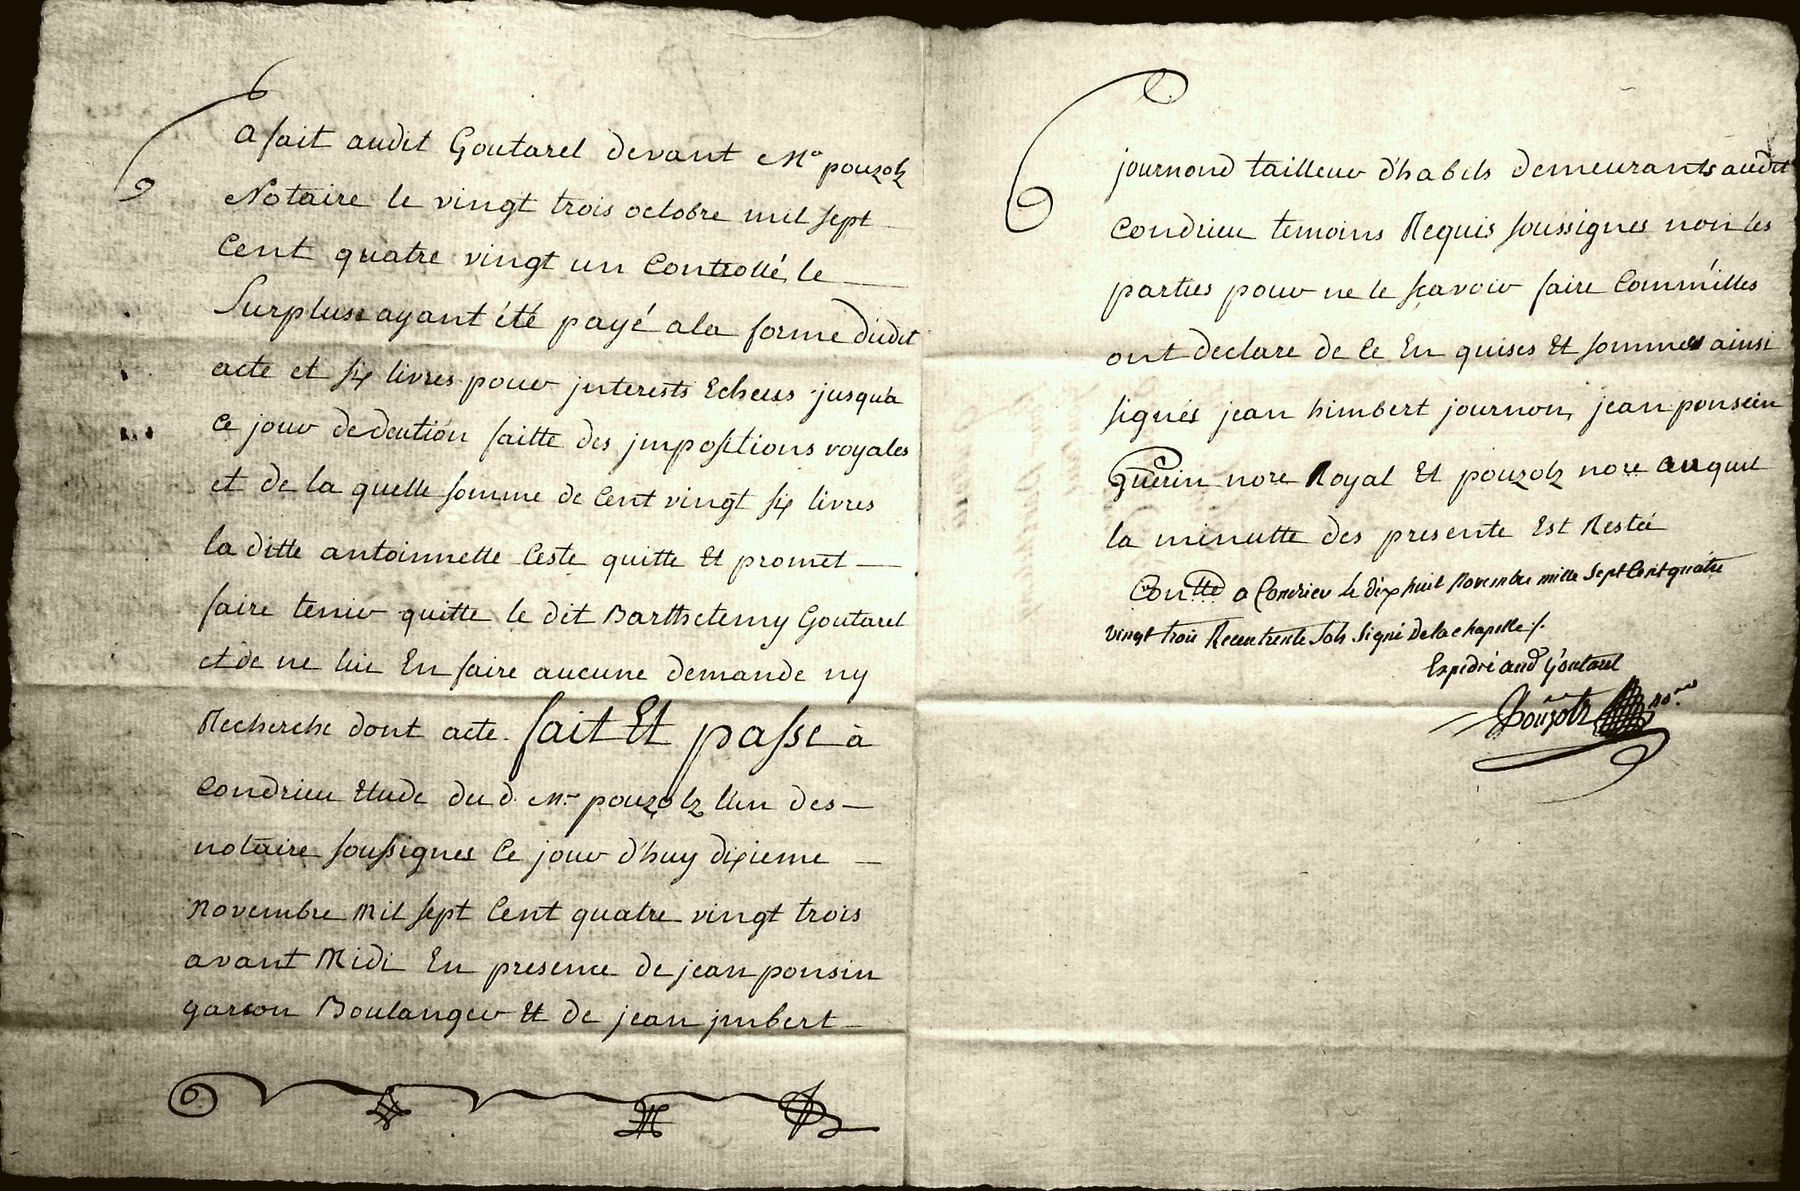 a fait audit Goutarel devant Me pouzolz
Notaire le vingt trois octobre mil sept
Cent quatre vingt un Controllé, le
Surplus ayant été payé a la forme dudit
acte et six livres pour jnterests Echeus jusqu'a
Ce jour dedeution faitte des jmpositions royales
et de la quelle somme de Cent vingt six livres
la ditte antoinnette Ceste quitte Et promet
faire tenir quitte le dit Barthelemy Goutarel
et de ne lui En faire aucune demande ny
Recherche dont acte. fait Et passe à
Condrieu Etude du d. Me pouzolz l'un des
notaire soussignes Ce jour d'huy dixieme
Novembre Mil sept Cent quatre vingt trois
avant Midi En presence de jean ponsin
garson Boulanger Et de jean jmbert
journond tailleur d'habits demeurants audit
Condrieu temoins Requis soussignes non les
parties pour ne le sçavoir faire Comm'elles
ont declare de Ce En quises Et sommes ainsi
signés jean himbert journon, jean ponsein
Guerin nore Royal Et pouzolz nore auquel
la minutte des presente Est Restée
Contté a Condrieu le dix huit Novembre mille Sept Cent quatre
vingt trois Receu trente sols Signé Delachapelle /.
Expedié aud Goutarel
Pouzolz no.re